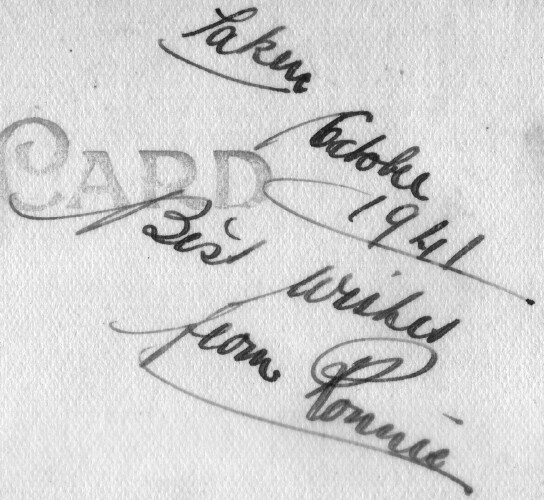 Taken
October
1941
CARD
Best
wishes
from Ronnie